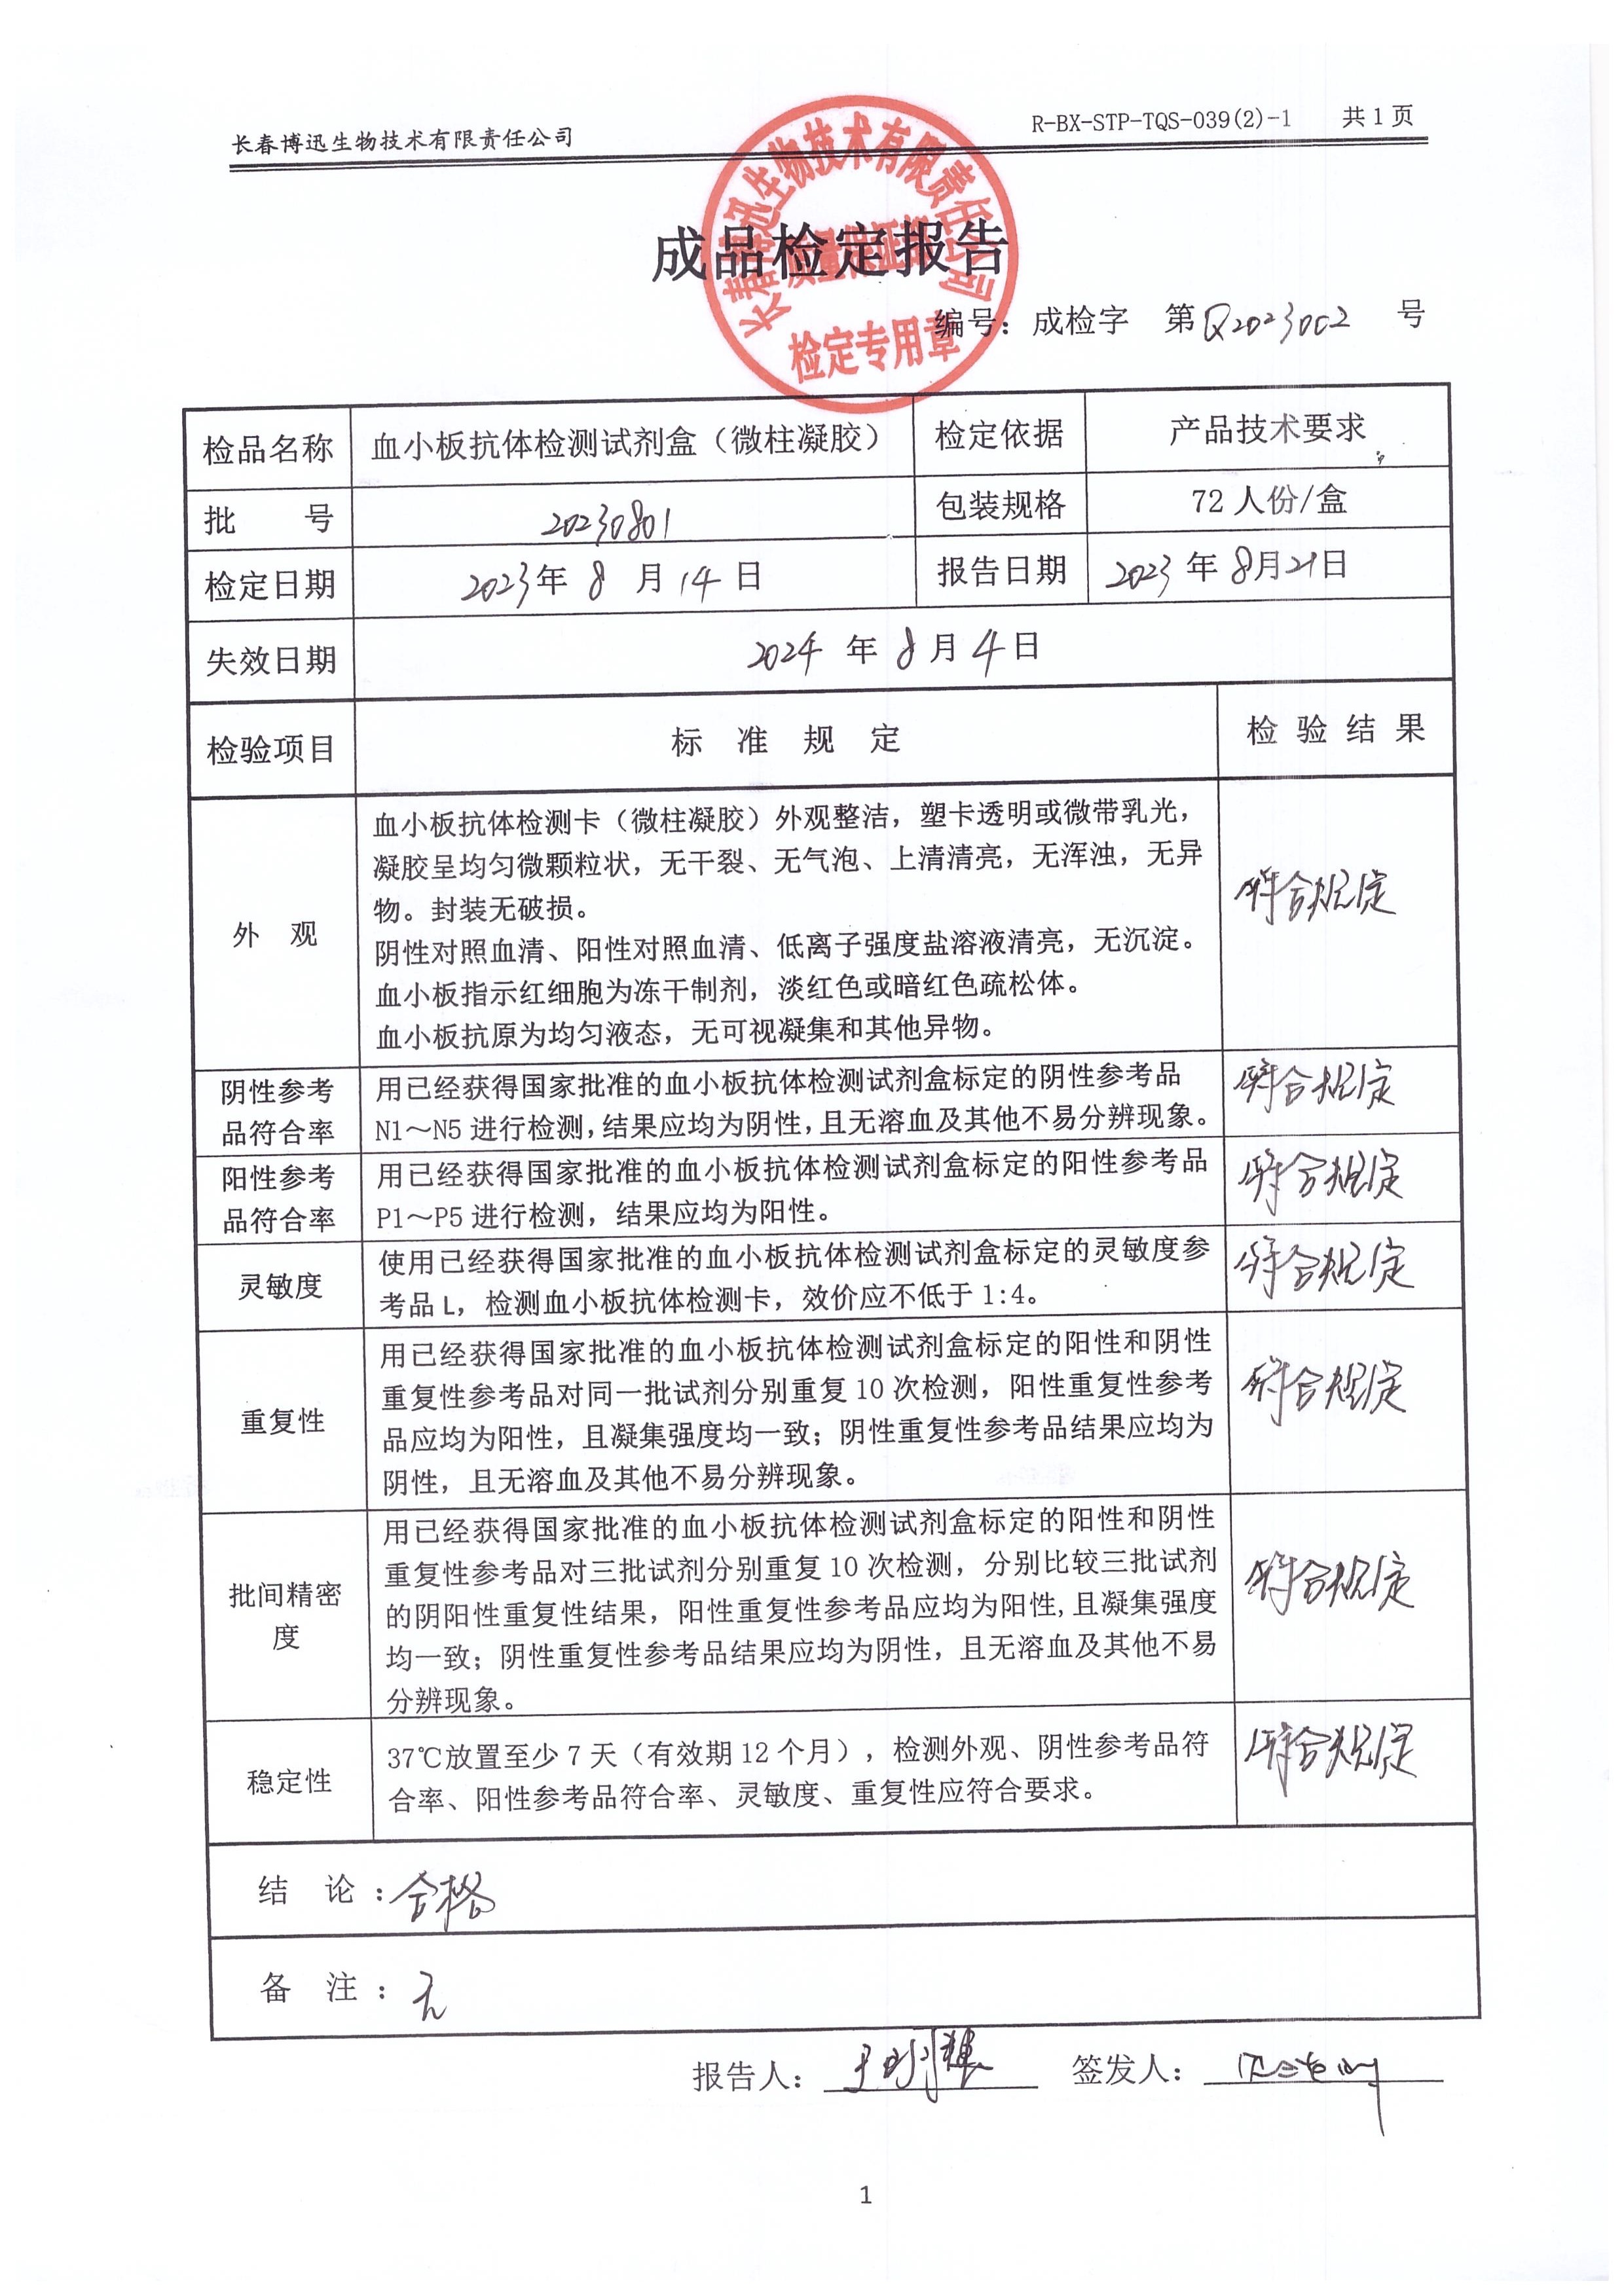 长春博迅生物技术有限责任公司
R-BX-STP-TQS-039(2)-1 共1页
长春博迅生物技术有限责任公司
质量保证部
检定专用章
成品检定报告
编号：成检字 第Q2023002 号
检品名称 血小板抗体检测试剂盒（微柱凝胶） 检定依据 产品技术要求
批 号 20230801 包装规格 72人份/盒
检定日期 2023年 8 月 14 日 报告日期 2023 年 8月21日
失效日期 2024 年 8 月 4 日
检验项目 标 准 规 定 检 验 结 果
血小板抗体检测卡（微柱凝胶）外观整洁，塑卡透明或微带乳光，
凝胶呈均匀微颗粒状，无干裂、无气泡、上清清亮，无浑浊，无异
物。封装无破损。
外 观
阴性对照血清、阳性对照血清、低离子强度盐溶液清亮，无沉淀。
血小板指示红细胞为冻干制剂，淡红色或暗红色疏松体。
血小板抗原为均匀液态，无可视凝集和其他异物。
符合规定
阴性参考
品符合率
用已经获得国家批准的血小板抗体检测试剂盒标定的阴性参考品
N1～N5进行检测,结果应均为阴性,且无溶血及其他不易分辨现象。
符合规定
阳性参考
品符合率
用已经获得国家批准的血小板抗体检测试剂盒标定的阳性参考品
P1～P5进行检测，结果应均为阳性。
符合规定
灵敏度
使用已经获得国家批准的血小板抗体检测试剂盒标定的灵敏度参
考品L，检测血小板抗体检测卡，效价应不低于1:4。
符合规定
重复性
用已经获得国家批准的血小板抗体检测试剂盒标定的阳性和阴性
重复性参考品对同一批试剂分别重复10次检测，阳性重复性参考
品应均为阳性，且凝集强度均一致；阴性重复性参考品结果应均为
阴性，且无溶血及其他不易分辨现象。
符合规定
批间精密
度
用已经获得国家批准的血小板抗体检测试剂盒标定的阳性和阴性
重复性参考品对三批试剂分别重复10次检测，分别比较三批试剂
的阴阳性重复性结果，阳性重复性参考品应均为阳性,且凝集强度
均一致；阴性重复性参考品结果应均为阴性，且无溶血及其他不易
分辨现象。
符合规定
稳定性
37℃放置至少7天（有效期12个月），检测外观、阴性参考品符
合率、阳性参考品符合率、灵敏度、重复性应符合要求。
符合规定
结 论：合格
备 注：无
报告人： 签发人：
1